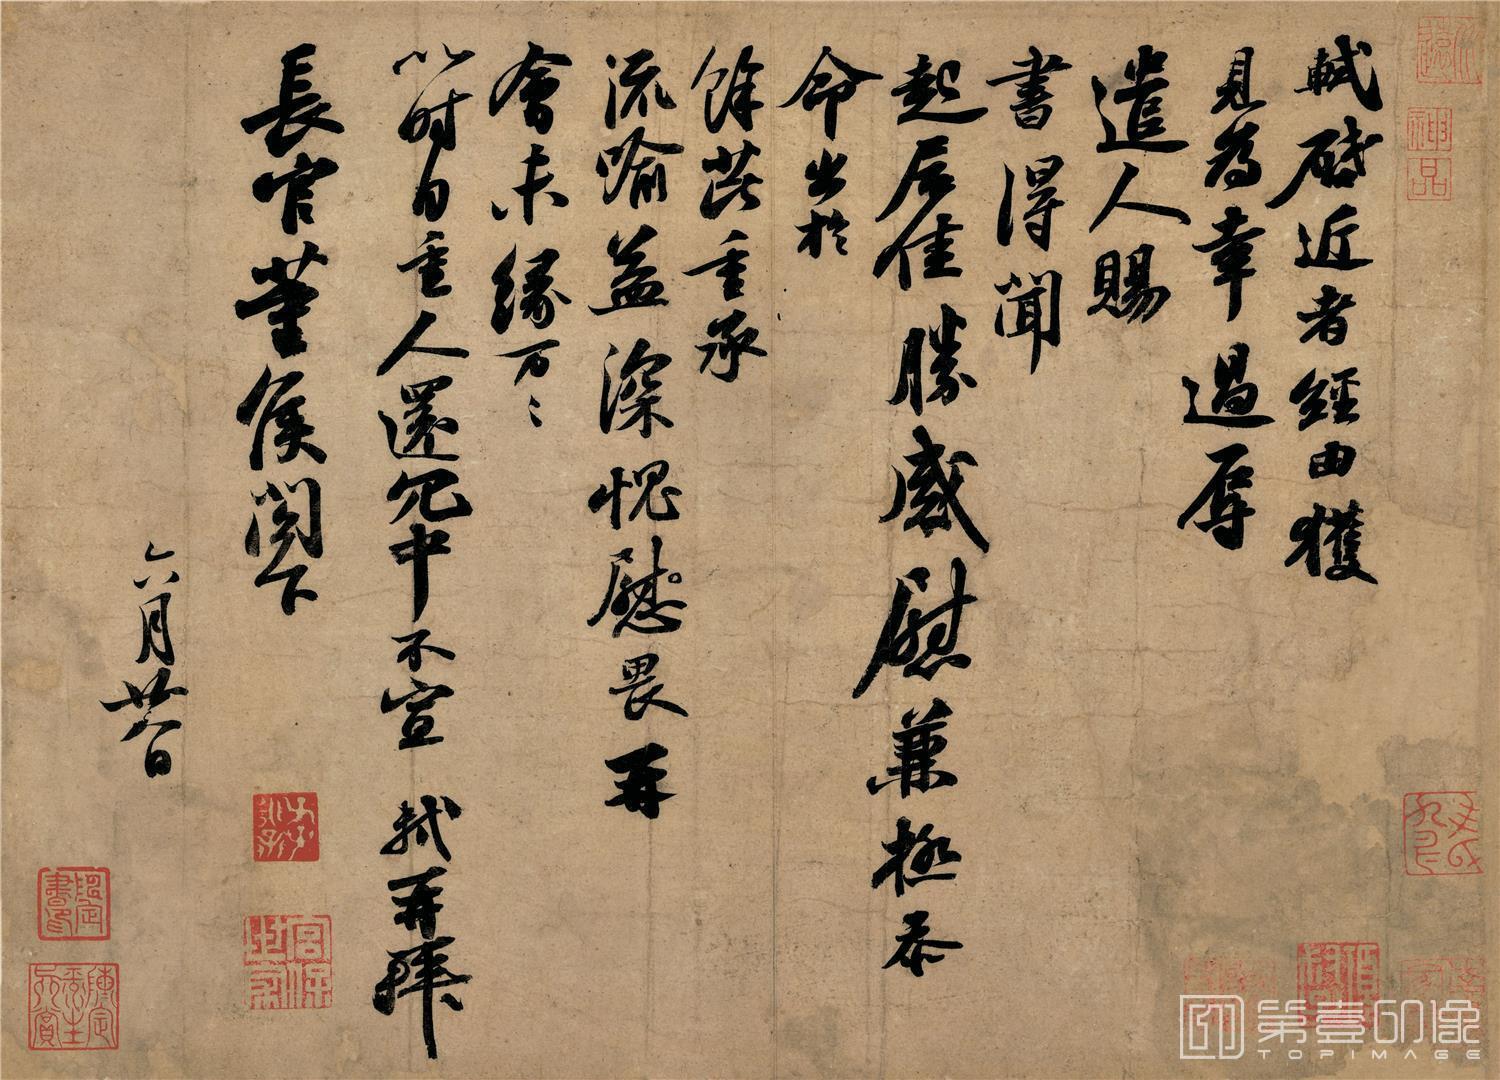 軾啓近者經由獲
見为幸過辱
遣人賜
書得聞
起居佳勝感慰兼極忝
命出於
餘芘重承
流喻益深愧慰畏再
會未緣万〻
以时自重人還冗中不宣 軾再拜
長官董侯閣下
六月廿八日
神品
宮保世家
第壹印像
TOPIMAGE